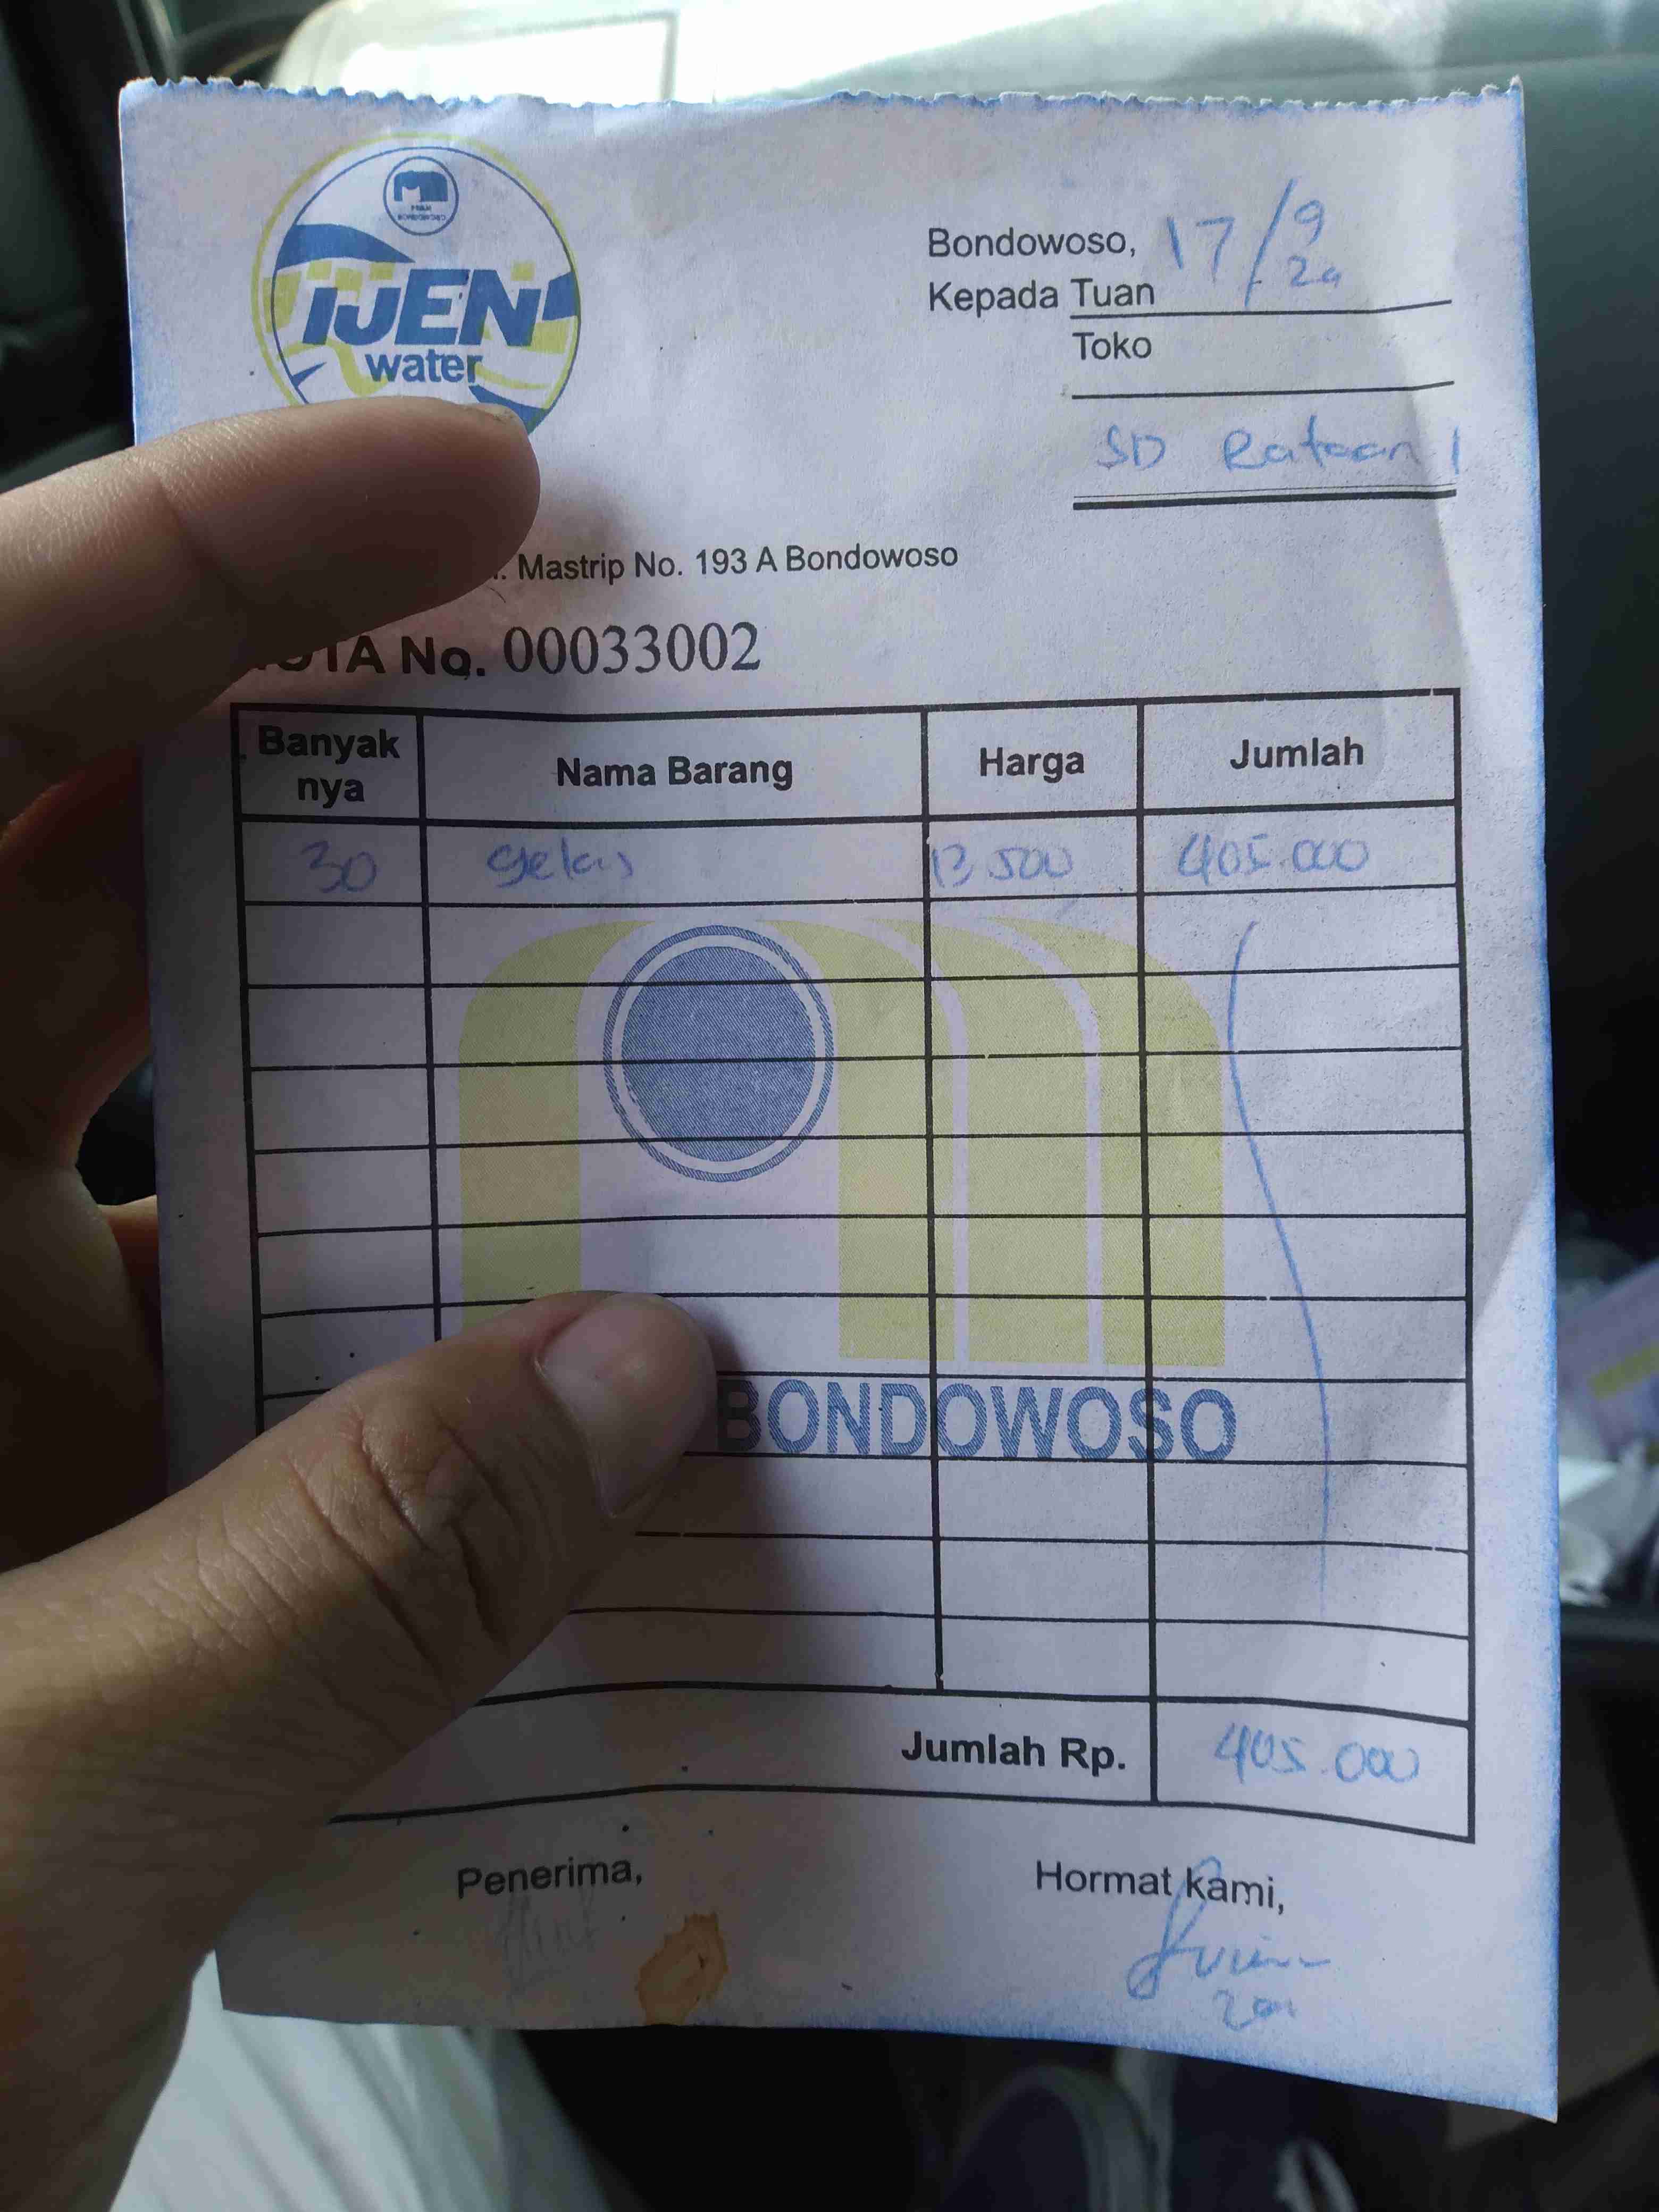 IJEN
water
Bondowoso, 17/9
24
Kepada Tuan
Toko
SD Rataan 1
Mastrip No. 193 A Bondowoso
NOTA No. 00033002
Banyak
nya
Nama Barang
Harga
Jumlah
30 gelas 13.500 405.000
BONDOWOSO
Jumlah Rp. 405.000
Penerima,
Hormat kami,